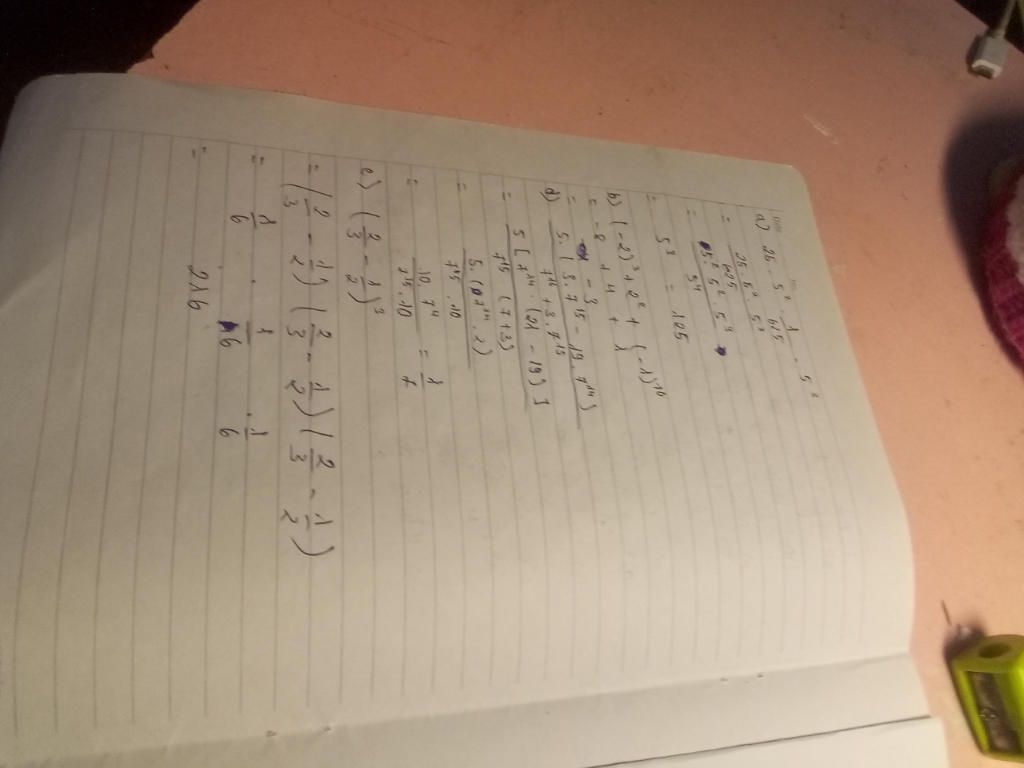 a) 25 . 5³ . 1/625 . 5²
= 25 . 5³ . 5² / 625
= 5² . 5² . 5³ / 5⁴
= 5³ = 125
b) (-2)³ + 2² + (-1)²⁰
= -8 + 4 + 1
= -3
d) 5.(3.7¹⁵ - 19.7¹⁴) / 7¹⁶ + 3.7¹⁵
= 5[7¹⁴.(21 - 19)] / 7¹⁵(7+3)
= 5.(7¹⁴.2) / 7¹⁵.10
= 10.7¹⁴ / 7¹⁵.10 = 1/7
e) (2/3 - 1/2)³
= (2/3 - 1/2)(2/3 - 1/2)(2/3 - 1/2)
= 1/6 . 1/6 . 1/6
= 216